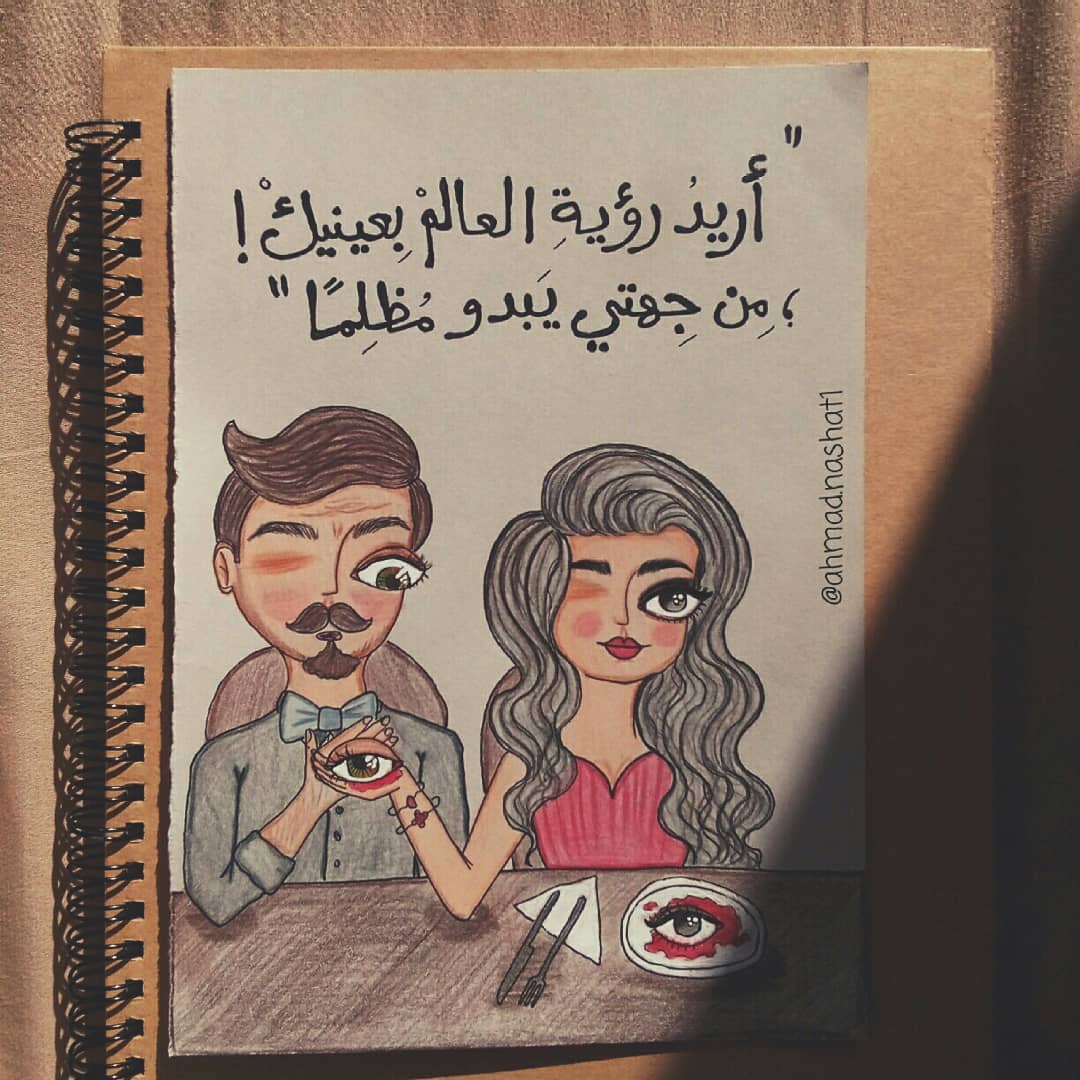 "أريدُ رؤيةِ العالمْ بِعينيكْ!
؛ مِن جِهتي يَبدو مُظلِمًا"
@ahmad.nashat1